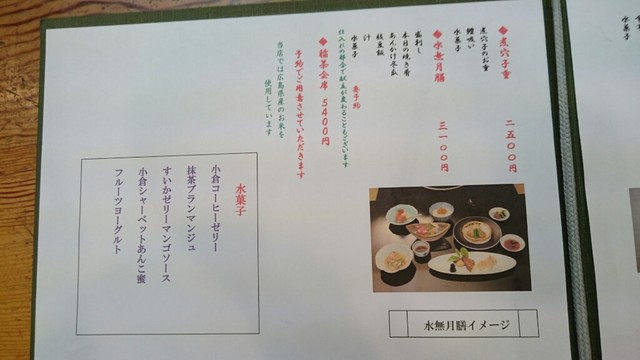 ◆煮穴子重 二五〇〇円
煮穴子のお重
鱧吸い
水菓子
◆水無月膳 三一〇〇円
本日の焼き肴
あんかけ冬瓜
枝豆飯
汁
水菓子
要予約
仕入れの都合で献立が変わることもございます
5400円
予約でご用意させていただきます
当店では広島県産のお米を
使用しています
水菓子
小倉コーヒーゼリー
抹茶ブランマンジュ
すいかゼリーマンゴソース
小倉シャーベットあんこ蜜
フルーツヨーグルト
水無月膳イメージ